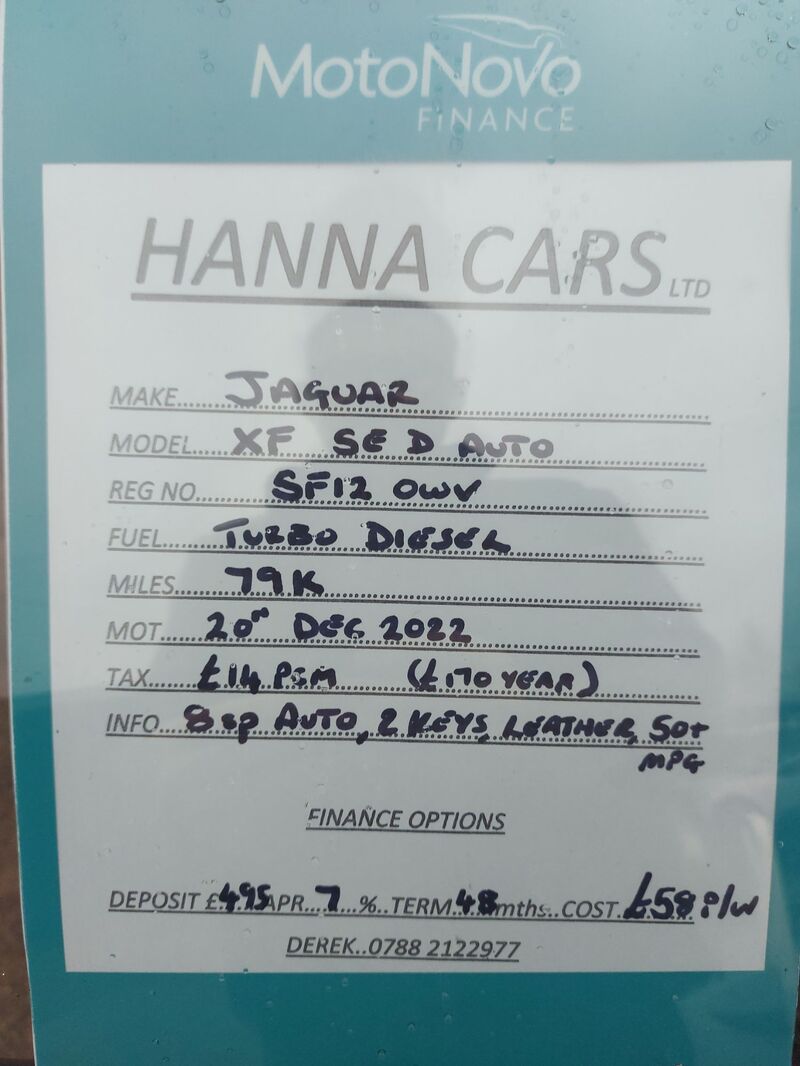 MotoNovo
FINANCE
HANNA CARS LTD
MAKE......JAGUAR
MODEL.....XF SE D AUTO
REG NO.......SF12 OWV
FUEL......TURBO DIESEL
MILES......79K
MOT.....20TH DEC 2022
TAX.....£14 PSM (£170 YEAR)
INFO....8sp AUTO, 2 KEYS, LEATHER, 50+
MPG
FINANCE OPTIONS
DEPOSIT £495 APR...7...%..TERM.48mths..COST.£58 P/W
DEREK..0788 2122977